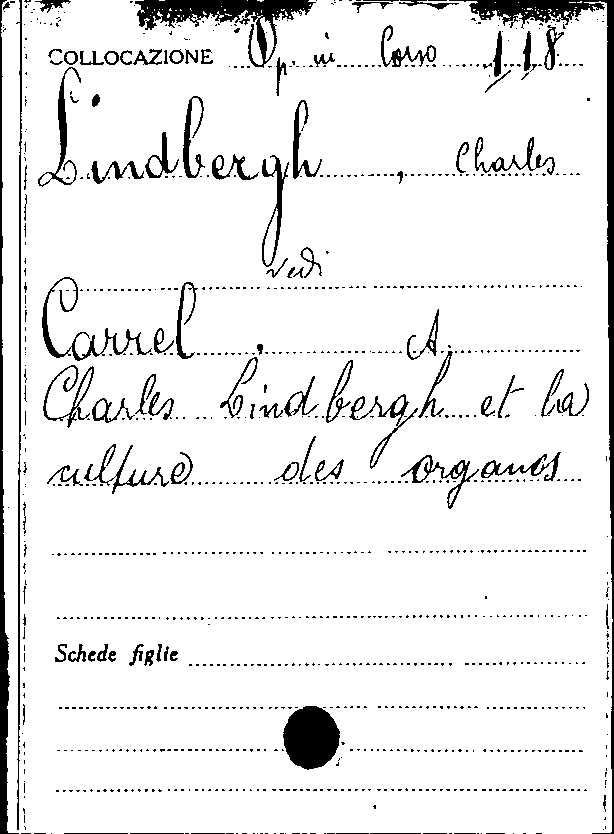 COLLOCAZIONE Op. in Corso 118
Lindbergh, Charles
vedi
Carrel, A.
Charles Lindbergh et la
culture des organes
Schede figlie